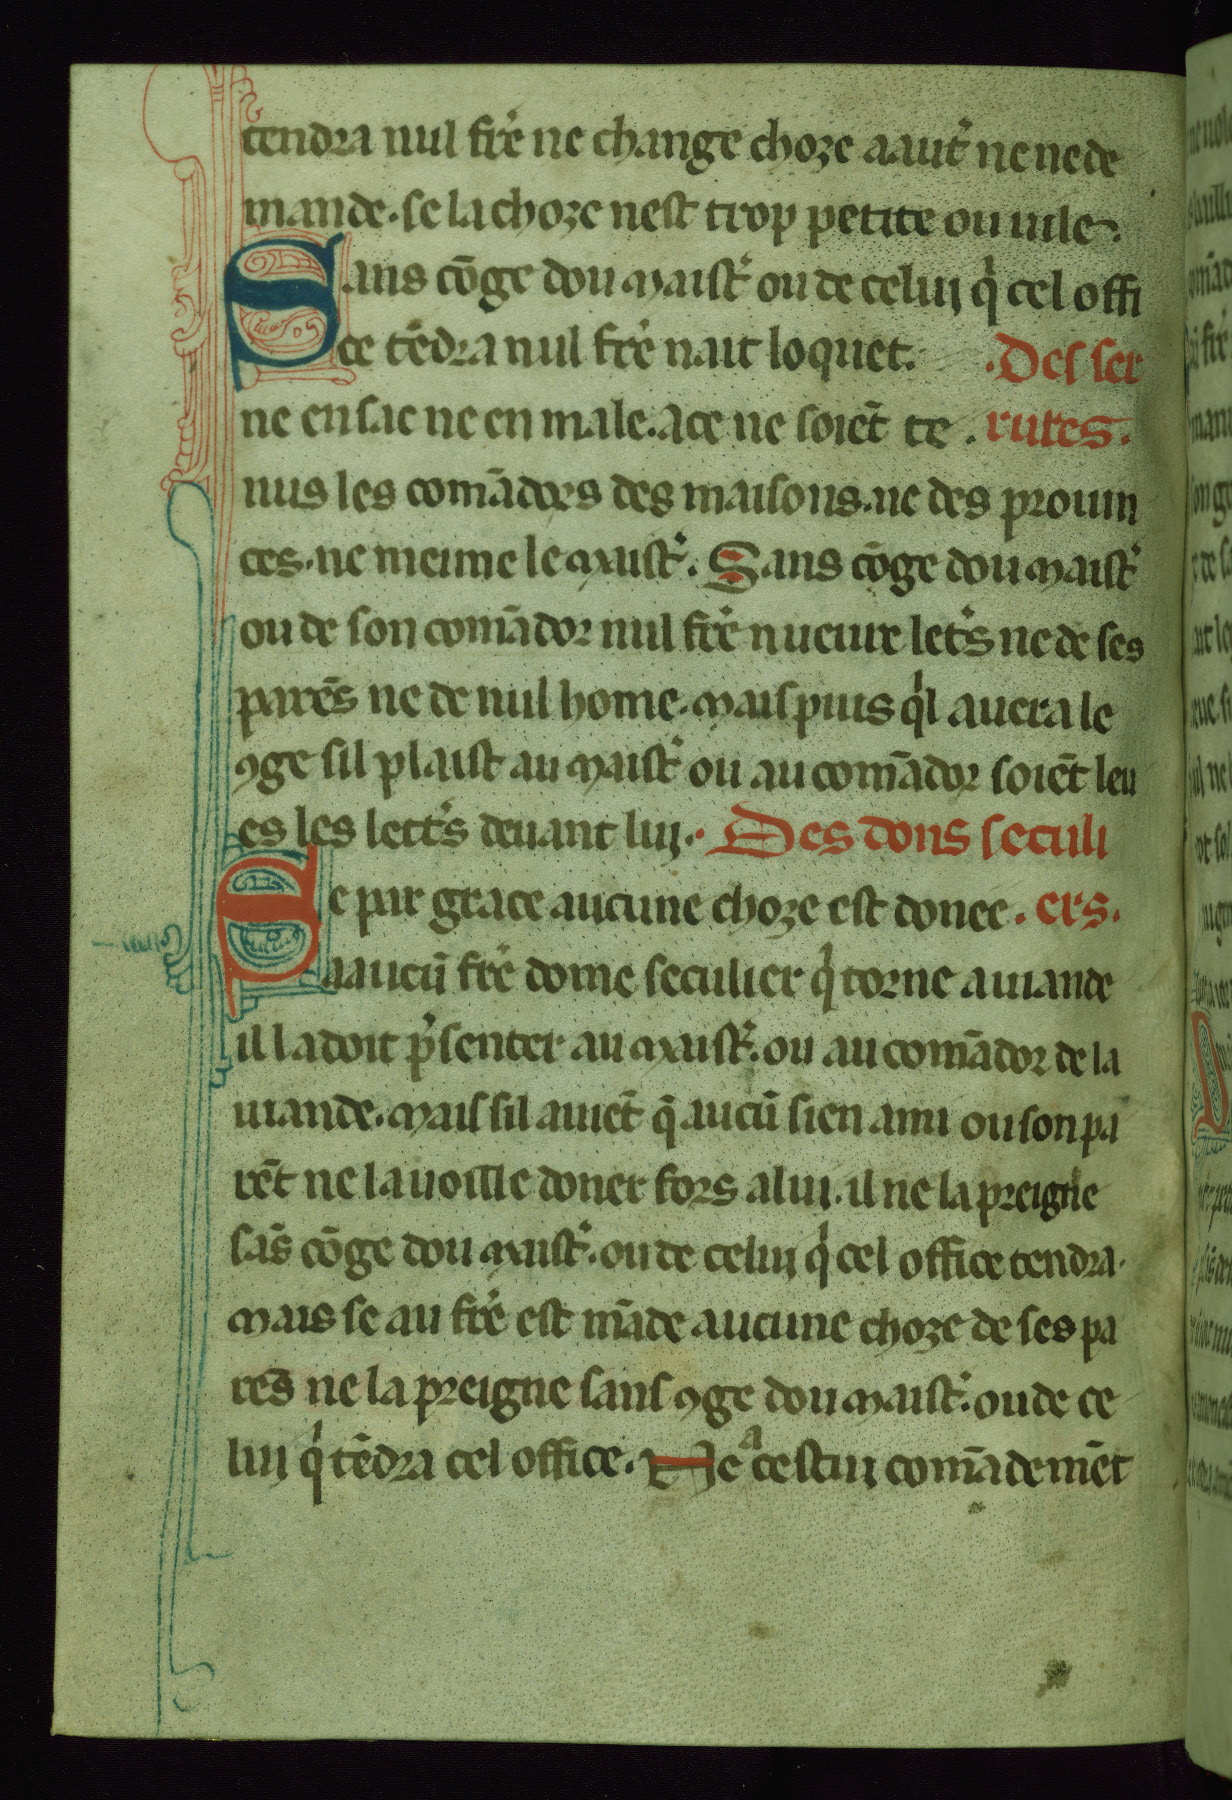 tendra nul fr̄e ne change choze a aut̾ ne ne de
mande. se la choze nest trop petite ou uile.
Sans cōge dou maist̾ ou de celui q̾ cel offi
ce tēdra nul fr̄e nait loquet. .Des ser
ne en sac ne en male. a ce ne soiēt te . rures.
nus les comādors des maisons. ne des prouin
ces. ne meime le maist̾. Sans cōge dou maist̾
ou de son comādor nul fr̄e n ueiue let̾s ne de ses
parēs ne de nul home. mais puis q̾l auera le
ꝯge sil plaist au maist̾ ou au comādor soiēt leu
es les lett̾s deuant lui. Des dons seculi
Se par grace aucune choze est donee . ers.
a aucū fr̄e dome seculier q̾ torne a uiande
il la doit p̾senter au maist̾. ou au comādor de la
uiande. mais sil auiēt q̄ aucū sien ami ou son pa
rēt ne la uoille doner fors a lui. il ne la preigne
sās cōge dou maist̾. ou de celui q̾ cel office tendra.
mais se au fr̄e est māde aucune choze de ses pa
rēs ne la preigne sans ꝯge dou maist̾. ou de ce
lui q̾ tēdra cel office. Ne a cestui comādemēt